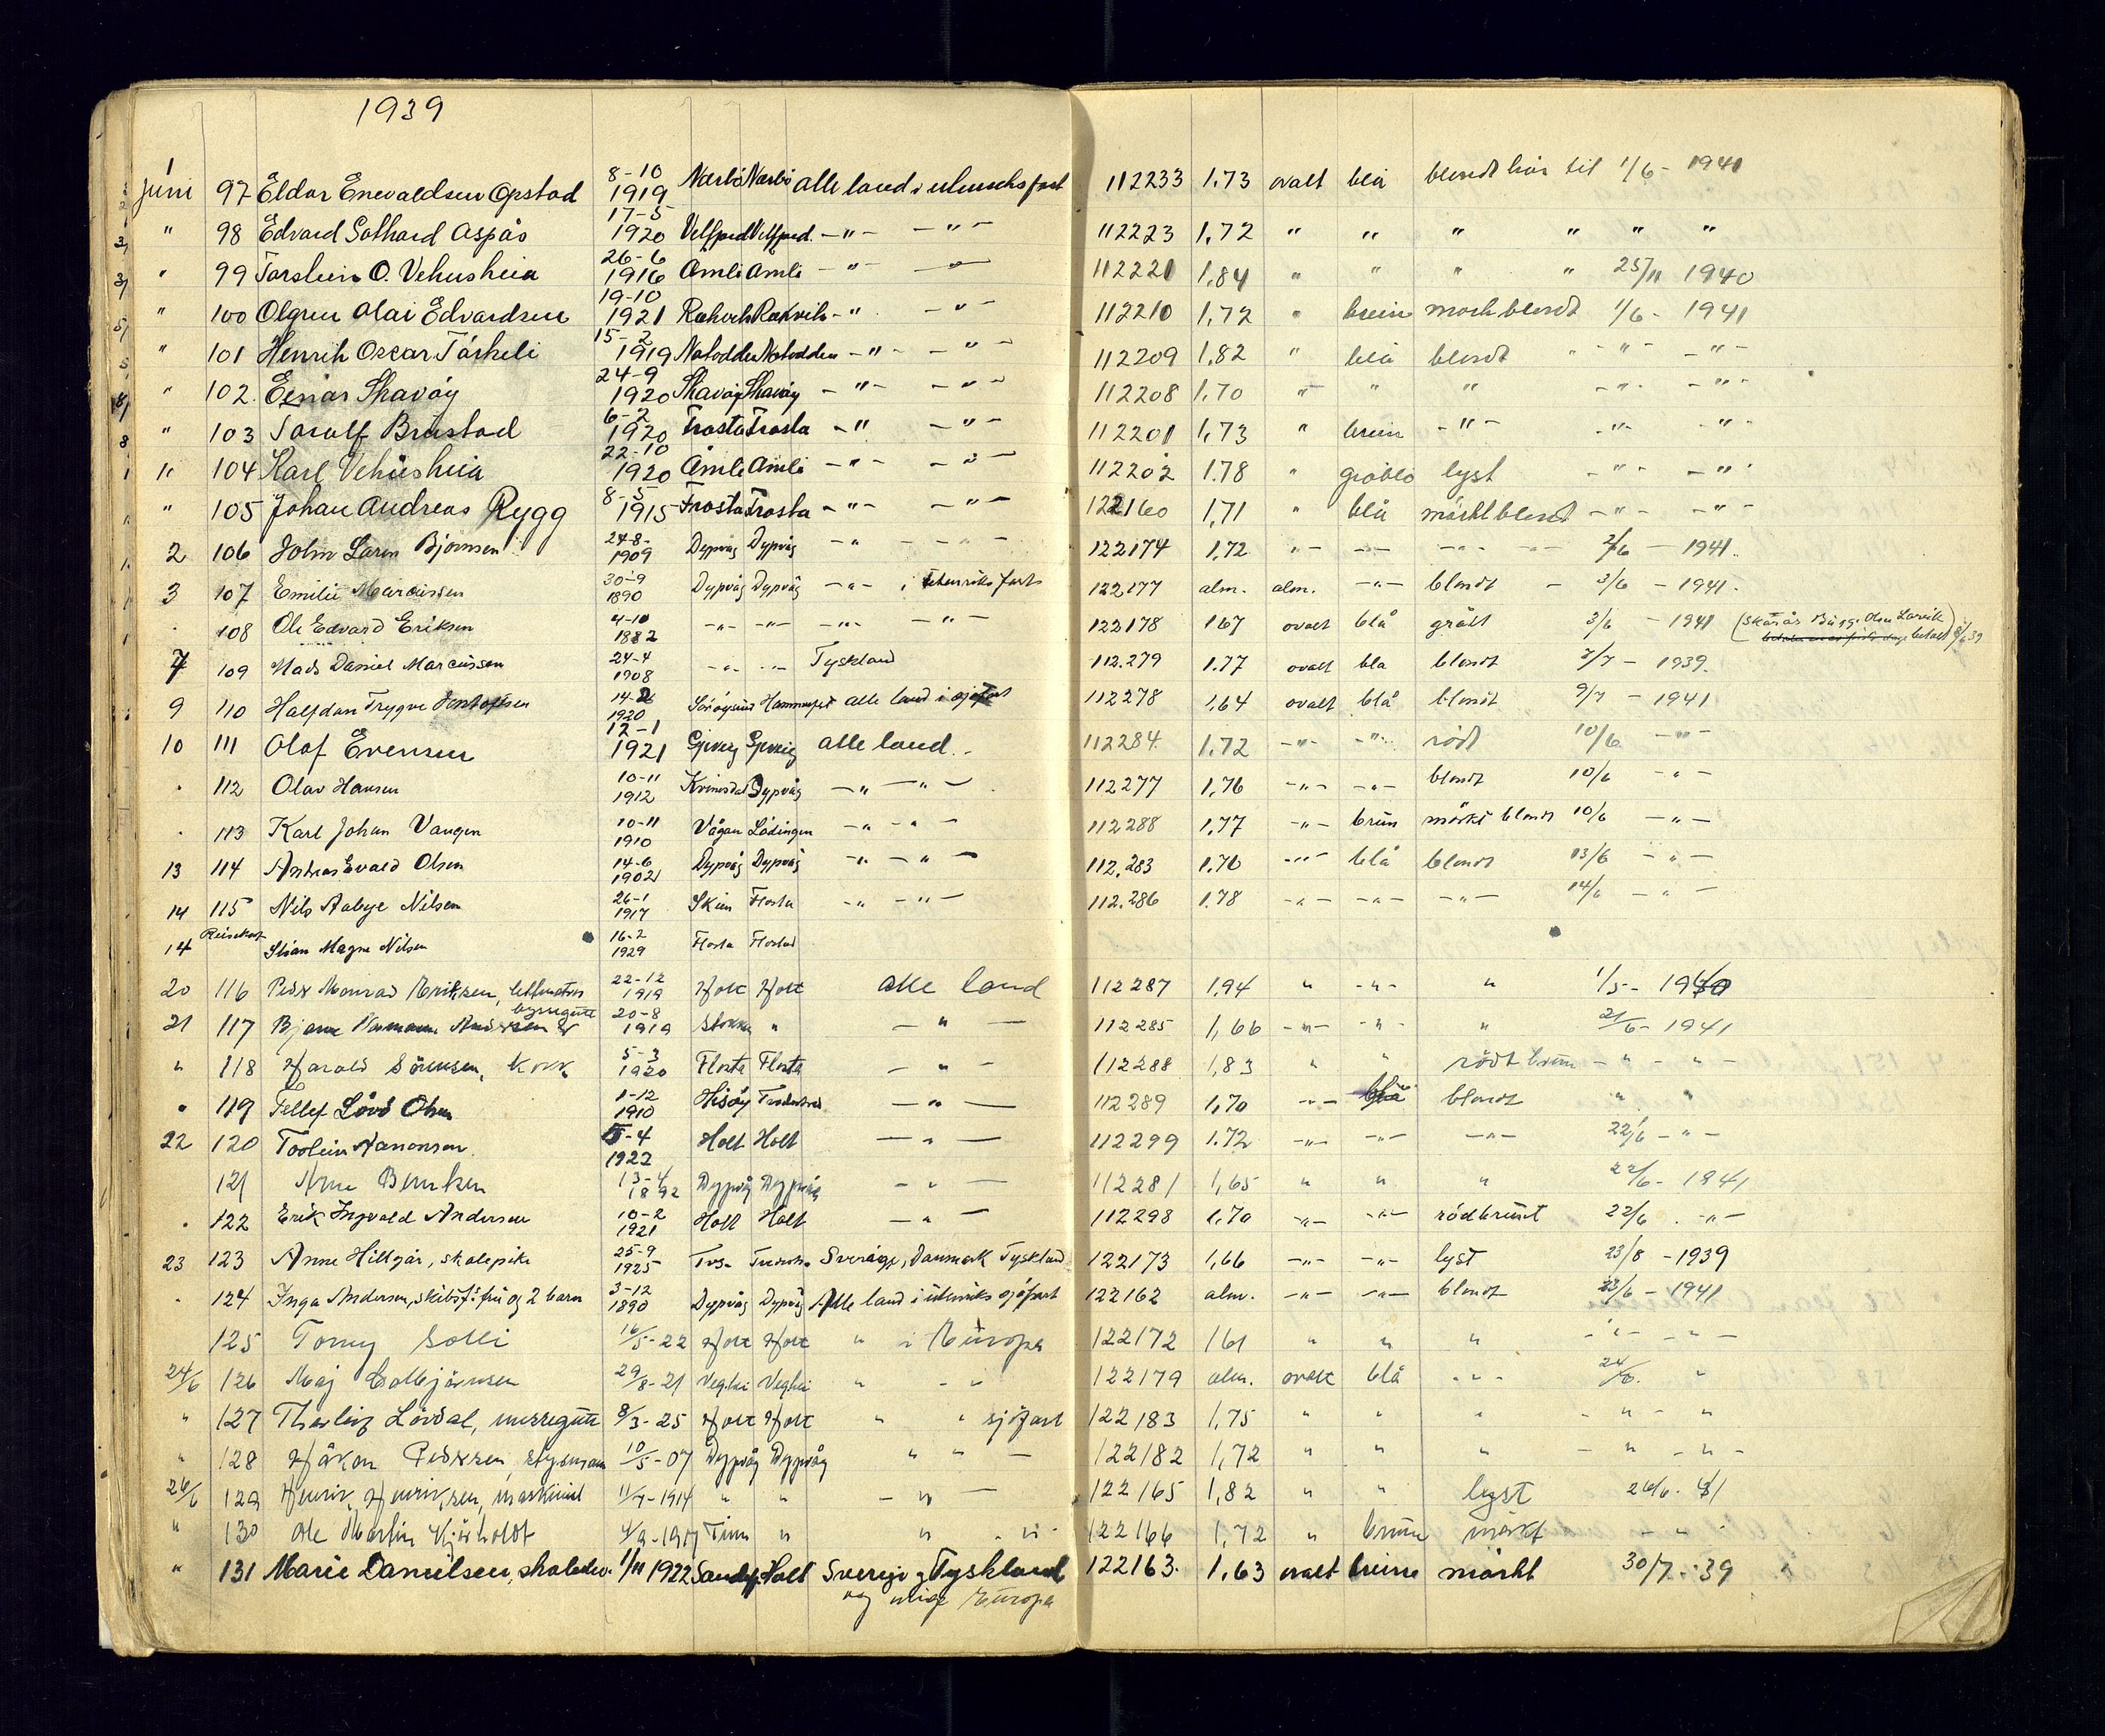 1939
1 Juni 97 Eldar Enevaldsen Opstad 8-10 1919 Nærbö Nærbö alle land i utenriks fart 112233 1.73 ovalt blå blondt hår til 1/6 - 1941
" 98 Edvard Gothard Aspås 17-5 1920 Velfjord Velfjord - " - - " - 112223 1,72 " " " " " "
" 99 Torstein O. Vehusheia 26-6 1916 Åmli Åmli - " - - " - 112221 1,84 " " " " 25/11 1940
" 100 Olgun Olai Edvardsen 19-10 1921 Rakvik Rakvik - " - " - 112210 1,72 " brune mørkblondt 1/6 - 1941
" 101 Henrik Oscar Tårkeli 15-2 1919 Notodden Notodden - " - - " - 112209 1,82 " blå blondt - " - - " -
" 102. Einar Skavöy 24-9 1920 Skavöy Skavöy - " - - " - 112208 1,70 " " " - " - - " -
" 103 Toralf Brustad 6-2 1920 Frosta Frosta - " - " - 112201 1,73 " brun - " - - " - - " -
" 104 Karl Vehusheia 22-10 1920 Åmli Åmli - " - - " - 112202 1.78 " gråblå lyst - " - - " -
" 105 Johan Andreas Rygg 8-5 1915 Frosta Frosta - " - - " - 122160 1,71 " blå mörkt blondt - " - - " -
2 106 John Bjornsen 24-8- 1909 Dypvåg Dypvåg - " - " - 122174 1,72 - " - - " - - " - 2/6 - 1941.
3 107 Emilie Marcussen 30-9 1890 Dypvåg Dypvåg - " - i utenriks fart 122177 alm. alm. - " - blondt - 3/6 - 1941.
. 108 Ole Edvard Eriksen 4-10 1882 - " - - " - - " - - " - 122178 167 ovalt blå grått 3/6 - 1941
7 109 Mads Daniel Marcussen 24-4 1908 - " - - " - Tyskland 112.279 1.77 ovalt blå blondt 7/7 - 1939.
9 110 Halfdan Trygve 14-2 1920 Söröysund Hammerfest alle land i sjöfart 112278 1,64 ovalt blå blondt 9/7 - 1941
10 111 Olaf Evensen 12-1 1921 alle land. - 112284 1,72 - " - - " - rödt 10/6 - " -
. 112 Olav Hansen 10-11 1912 Kvinesdal Dypvåg - " - " - 112277 1,76 - " - - " - blondt 10/6 - " -
. 113 Karl Johan Vangen 10-11 1910 Vågan Lödingen - " - " - 112288 1,77 - " - brun mörkt blondt 10/6 - " -
13 114 Andreas Evald Olsen 14-6 1902 Dypvåg Dypvåg - " - " - 112,283 1.70 - " - blå blondt 13/6 - " -
14 115 Nils Aabye Nilsen 26-1 1917 Skien Flosta - " - " - 112.286 1.78 - " - - " - - " - 14/6 - " -
14 Reisekort Stian Magne Nilsen 16-2 1929 Flosta Flostad
20 116 Peder Monrad Eriksen, lettmatros 22-12 1919 Holt Holt alle land 112287 1.94 " - " - " 1/5 - 1940
21 117 Bjarne Normann Andersen byssegutt 20-8 1919 Stokken " - " - 112285 1,66 - " - - " - " 21/6 - 1941
" 118 Harald Sörensen, kokk 5-3 1920 Flosta Flosta - " - 112288 1,83 " " rödt brun - " - " -
" 119 Tellef Lövö Olsen 1-12 1910 Hisöy - " - 112289 1,70 - " - blå blondt " "
22 120 Aanonsen. 5-4 1922 Holt Holt - " - 112299 1.72 - " - - " - - " - 22/6 - " -
121 Arne 13-4 1892 Dypvåg Dypvåg - " - 112281 1,65 " " " 22/6 - 1941
. 122 Erik Ingvald Andersen 10-2 1921 Holt Holt - " - 112298 1,70 - " - - " - rödbrunt 22/6 . - " -
23 123 Anne Hillgår, skolepike 25-9 1925 Sverige, Danmark Tyskland 122173 1,66 - " - - " - lyst 23/8 - 1939
. 124 Inga Andersen, skibsf. frue og 2 barn 3-12 1890 Dypvåg Dypvåg Alle land i utenriks sjöfart 122162 alm. - " - - " - blondt 23/6 - 1941
125 Tomy Solli 16/5-22 Holt Holt " i Europa 122172 161 " " " - " - " -
24/6 126 Maj 29/8-21 Vegli Vegli " - " 122179 alm. ovalt blå - " - 24/6. "
" 127 Lövdal, messegutt 8/3-25 Holt Holt " " sjöfart 122183 1,75 " " " - " - "
" 128 Håkon Pedersen, styrmann 10/5-07 Dypvåg Dypvåg " " - 122182 1,72 " " " - " - " -
26/6 129 Henrik Henriksen, maskinist 11/7-1914 " " - " - 122165 1,82 " " lyst 26/6. 41
" 130 Ole Martin Kjærholdt 4/9-1917 Tinn " " . " . 122166 1,72 " brune mörkt - " -
" 131 Marie Danielsen, skoleelev. 1/11 1922 Holt Sverige og Tyskland 122163. 1.63 ovalt brune mörkt 30/7.-39
og övrige Europa